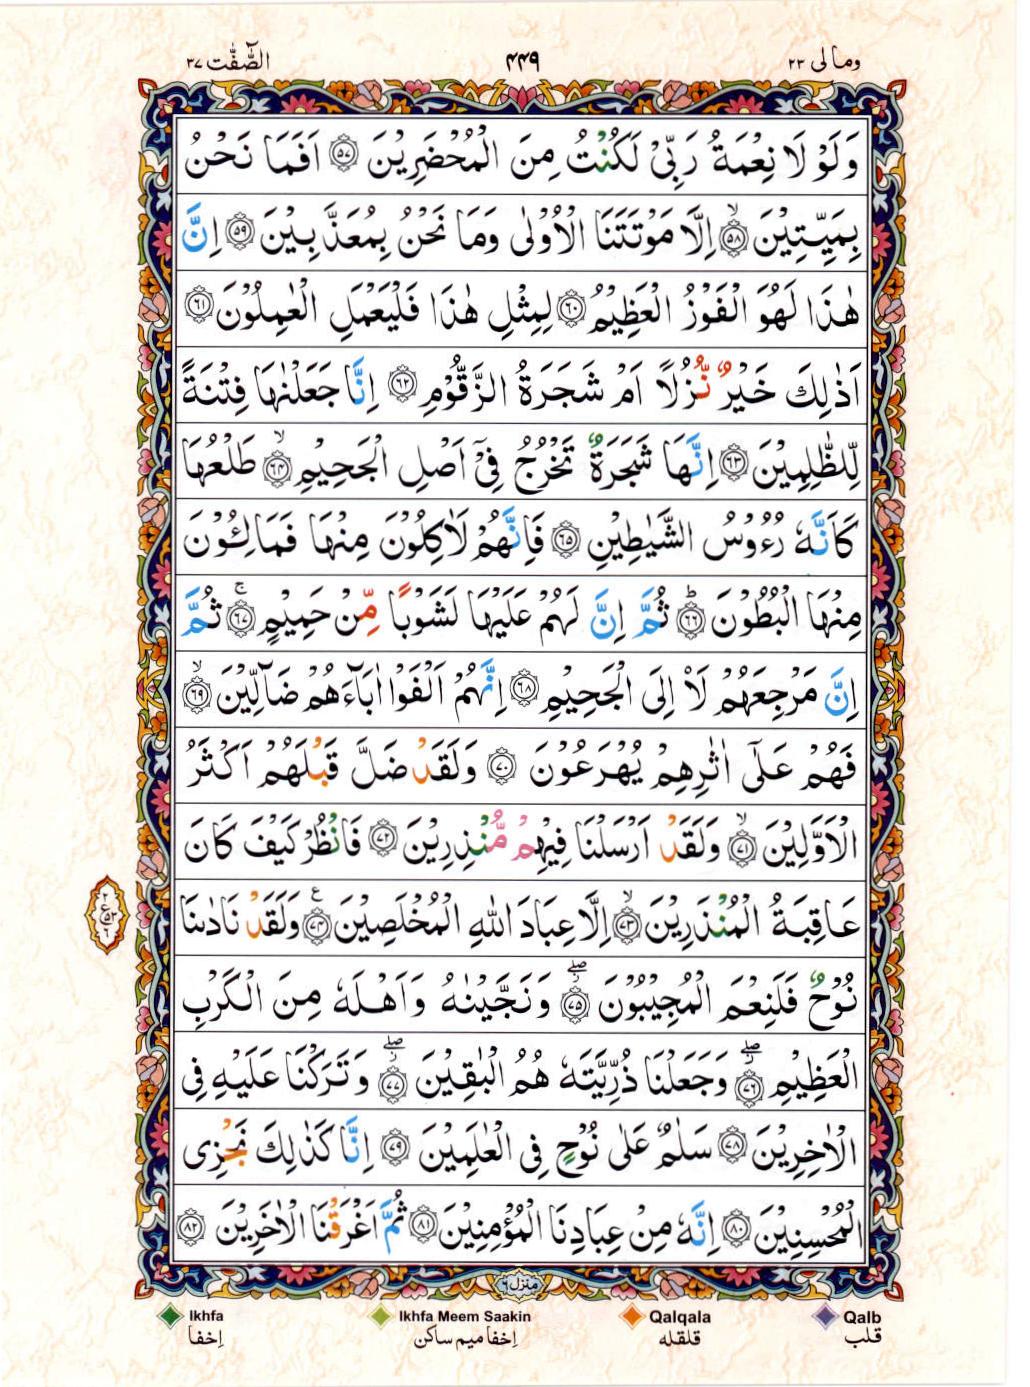 الصّٰٓفّٰت ٣٧ ٤٤٩ ومالی ٢٣
وَلَوْ لَا نِعْمَةُ رَبِّیْ لَكُنْتُ مِنَ الْمُحْضَرِیْنَ ٥٧ اَفَمَا نَحْنُ
بِمَیِّتِیْنَ ۙ٥٨ اِلَّا مَوْتَتَنَا الْاُوْلٰى وَمَا نَحْنُ بِمُعَذَّبِیْنَ ٥٩ اِنَّ
هٰذَا لَهُوَ الْفَوْزُ الْعَظِیْمُ ٦٠ لِمِثْلِ هٰذَا فَلْیَعْمَلِ الْعٰمِلُوْنَ ٦١
اَذٰلِكَ خَیْرٌ نُّزُلًا اَمْ شَجَرَةُ الزَّقُّوْمِ ٦٢ اِنَّا جَعَلْنٰهَا فِتْنَةً
لِّلظّٰلِمِیْنَ ٦٣ اِنَّهَا شَجَرَةٌ تَخْرُجُ فِیْۤ اَصْلِ الْجَحِیْمِ ۙ٦٤ طَلْعُهَا
كَاَنَّهٗ رُءُوْسُ الشَّیٰطِیْنِ ٦٥ فَاِنَّهُمْ لَاٰكِلُوْنَ مِنْهَا فَمَالِـُٔوْنَ
مِنْهَا الْبُطُوْنَ ؕ٦٦ ثُمَّ اِنَّ لَهُمْ عَلَیْهَا لَشَوْبًا مِّنْ حَمِیْمٍ ۚ٦٧ ثُمَّ
اِنَّ مَرْجِعَهُمْ لَاۡاِلَى الْجَحِیْمِ ٦٨ اِنَّهُمْ اَلْفَوْا اٰبَآءَهُمْ ضَآلِّیْنَ ۙ٦٩
فَهُمْ عَلٰۤى اٰثٰرِهِمْ یُهْرَعُوْنَ ٧٠ وَلَقَدْ ضَلَّ قَبْلَهُمْ اَكْثَرُ
الْاَوَّلِیْنَ ۙ٧١ وَلَقَدْ اَرْسَلْنَا فِیْهِمْ مُّنْذِرِیْنَ ٧٢ فَانْظُرْ كَیْفَ كَانَ
عَاقِبَةُ الْمُنْذَرِیْنَ ۙ٧٣ اِلَّا عِبَادَ اللّٰهِ الْمُخْلَصِیْنَ ٧٤ ع وَلَقَدْ نَادٰىنَا
نُوْحٌ فَلَنِعْمَ الْمُجِیْبُوْنَ ۖ٧٥ وَنَجَّیْنٰهُ وَاَهْلَهٗ مِنَ الْكَرْبِ
الْعَظِیْمِ ۖ٧٦ وَجَعَلْنَا ذُرِّیَّتَهٗ هُمُ الْبٰقِیْنَ ۖ٧٧ وَتَرَكْنَا عَلَیْهِ فِی
الْاٰخِرِیْنَ ۖ٧٨ سَلٰمٌ عَلٰى نُوْحٍ فِی الْعٰلَمِیْنَ ٧٩ اِنَّا كَذٰلِكَ نَجْزِی
الْمُحْسِنِیْنَ ٨٠ اِنَّهٗ مِنْ عِبَادِنَا الْمُؤْمِنِیْنَ ٨١ ثُمَّ اَغْرَقْنَا الْاٰخَرِیْنَ ٨٢
منزل ٦
Ikhfa Ikhfa Meem Saakin Qalqala Qalb
إخفا إخفا میم ساکن قلقله قلب